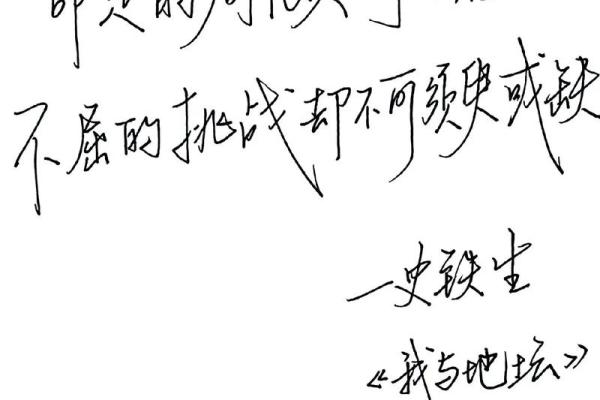 的
不屈的挑战却不可须臾或缺
—史铁生
《我与地坛》